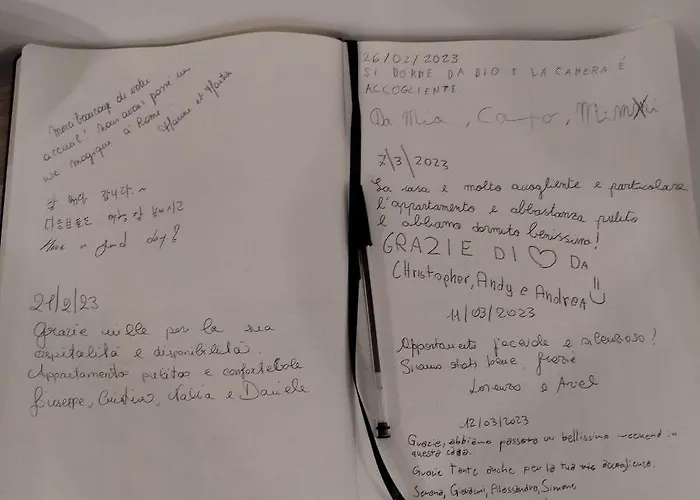 Merci beaucoup de votre
accueil! Nous avons passé un
we magique à Rome.
잘 쉬다 갑니다.~
Have a good day!
21/2/23
Grazie mille per la sua
ospitalità e disponibilità.
Appartamento pulito e confortebole
Giuseppe, Cristina, Nalia e Daniele
26/02/2023
SI DORME DA DIO E LA CAMERA È
ACCOGLIENTE
Da Mia, 
7/3/2023
La casa è molto accogliente e particolare
l'appartamento è abbastanza pulito
e abbiamo dormito benissimo!
GRAZIE DI ♡ DA
Christopher, Andy e Andrea
11/03/2023
Appartamento piacevole e silenzioso!
Siamo stati bene. Grazie
Lorenzo e
12/03/2023
Grazie, abbiamo passato un bellissimo weekend in
questa casa.
Grazie tante anche per la tua accoglienza.
Serena, Giovanni, Alessandro, Simone